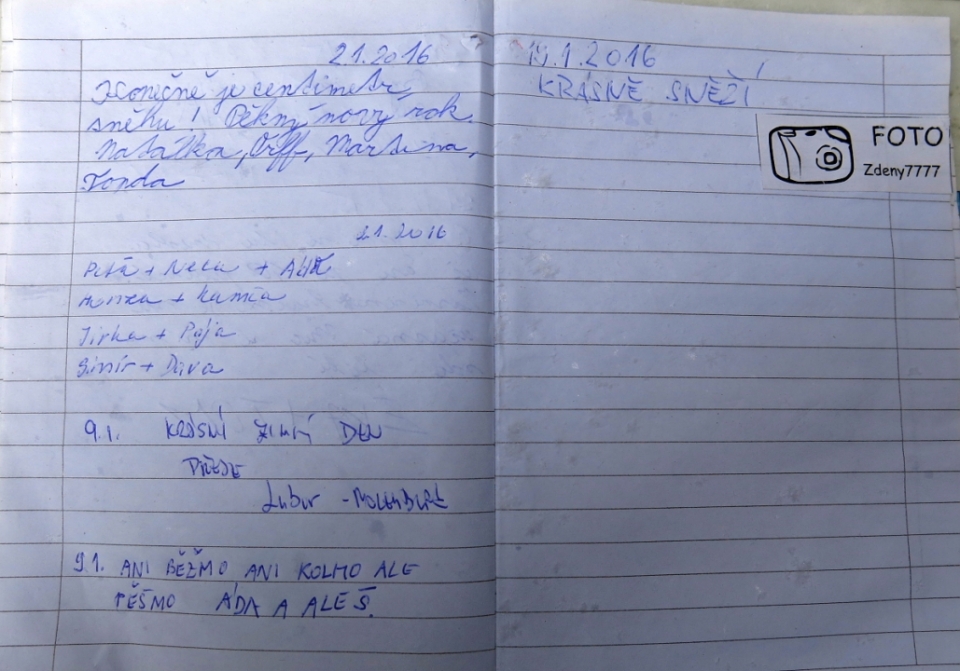 2.1.2016
Konečně je centimetr
sněhu! Pěkný nový rok.
Natálka, Off, Martina,
Tonda
2.1.2016
Peťa + Nela +
Honza + Kamča
Jirka + Pája
+
9.1. KRÁSNÝ ZIMNÍ DEN
PŘEJE
Lubor -
9.1. ANI BĚŽMO ANI KOLMO ALE
PĚŠMO ÁDA A ALEŠ.
19.1.2016
KRÁSNĚ SNĚŽÍ
FOTO
Zdeny7777